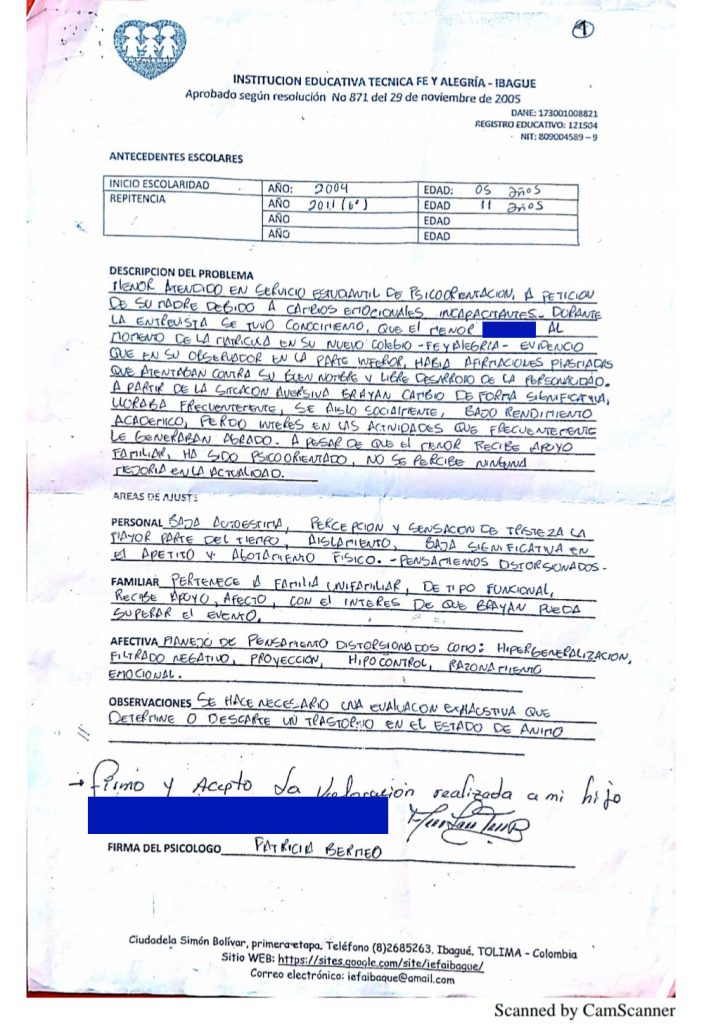 1
FE Y ALEGRIA
INSTITUCION EDUCATIVA TECNICA FE Y ALEGRÍA - IBAGUE
Aprobado según resolución No 871 del 29 de noviembre de 2005
DANE: 173001008821
REGISTRO EDUCATIVO: 121504
NIT: 809004589 – 9
ANTECEDENTES ESCOLARES
INICIO ESCOLARIDAD AÑO: 2004 EDAD: 05 años
REPITENCIA AÑO 2011 (6°) EDAD 11 años
AÑO EDAD
AÑO EDAD
DESCRIPCION DEL PROBLEMA
MENOR ATENDIDO EN SERVICIO ESTUDIANTIL DE PSICOORIENTACION, A PETICION
DE SU MADRE DEBIDO A CAMBIOS EMOCIONALES INCAPACITANTES. DURANTE
LA ENTREVISTA SE TUVO CONOCIMIENTO, QUE EL MENOR AL
MOMENTO DE LA MATRICULA EN SU NUEVO COLEGIO - FE Y ALEGRIA - EVIDENCIO
QUE EN SU OBSERVADOR EN LA PARTE INFERIOR, HABIA AFIRMACIONES PLASMADAS
QUE ATENTABAN CONTRA SU BUEN NOMBRE Y LIBRE DESARROLLO DE LA PERSONALIDAD.
A PARTIR DE LA SITUACION AVERSIVA BRAYAN CAMBIO DE FORMA SIGNIFICATIVA,
LLORABA FRECUENTEMENTE, SE AISLO SOCIALMENTE, BAJO RENDIMIENTO
ACADEMICO, PERDIO INTERES EN LAS ACTIVIDADES QUE FRECUENTEMENTE
LE GENERABAN AGRADO. A PESAR DE QUE EL MENOR RECIBE APOYO
FAMILIAR, HA SIDO PSICOORIENTADO, NO SE PERCIBE NINGUNA
MEJORIA EN LA ACTUALIDAD.
AREAS DE AJUSTE
PERSONAL BAJA AUTOESTIMA, PERCEPCION Y SENSACION DE TRISTEZA LA
MAYOR PARTE DEL TIEMPO, AISLAMIENTO, BAJA SIGNIFICATIVA EN
EL APETITO Y AGOTAMIENTO FISICO. - PENSAMIENTOS DISTORSIONADOS -
FAMILIAR PERTENECE A FAMILIA UNIFAMILIAR, DE TIPO FUNCIONAL,
RECIBE APOYO, AFECTO, CON EL INTERES DE QUE BRAYAN PUEDA
SUPERAR EL EVENTO.
AFECTIVA MANEJO DE PENSAMIENTO DISTORSIONADOS COMO: HIPERGENERALIZACION,
FILTRADO NEGATIVO, PROYECCION, HIPOCONTROL, RAZONAMIENTO
EMOCIONAL.
OBSERVACIONES SE HACE NECESARIO UNA EVALUACION EXHAUSTIVA QUE
DETERMINE O DESCARTE UN TRASTORNO EN EL ESTADO DE ANIMO
→ Firmo y Acepto La Valoración realizada a mi hijo
FIRMA DEL PSICOLOGO PATRICIA BERMEO
Ciudadela Simón Bolívar, primera etapa. Teléfono (8)2685263. Ibagué. TOLIMA - Colombia
Sitio WEB: https://sites.google.com/site/iefaibague/
Correo electrónico: iefaibague@gmail.com
Scanned by CamScanner